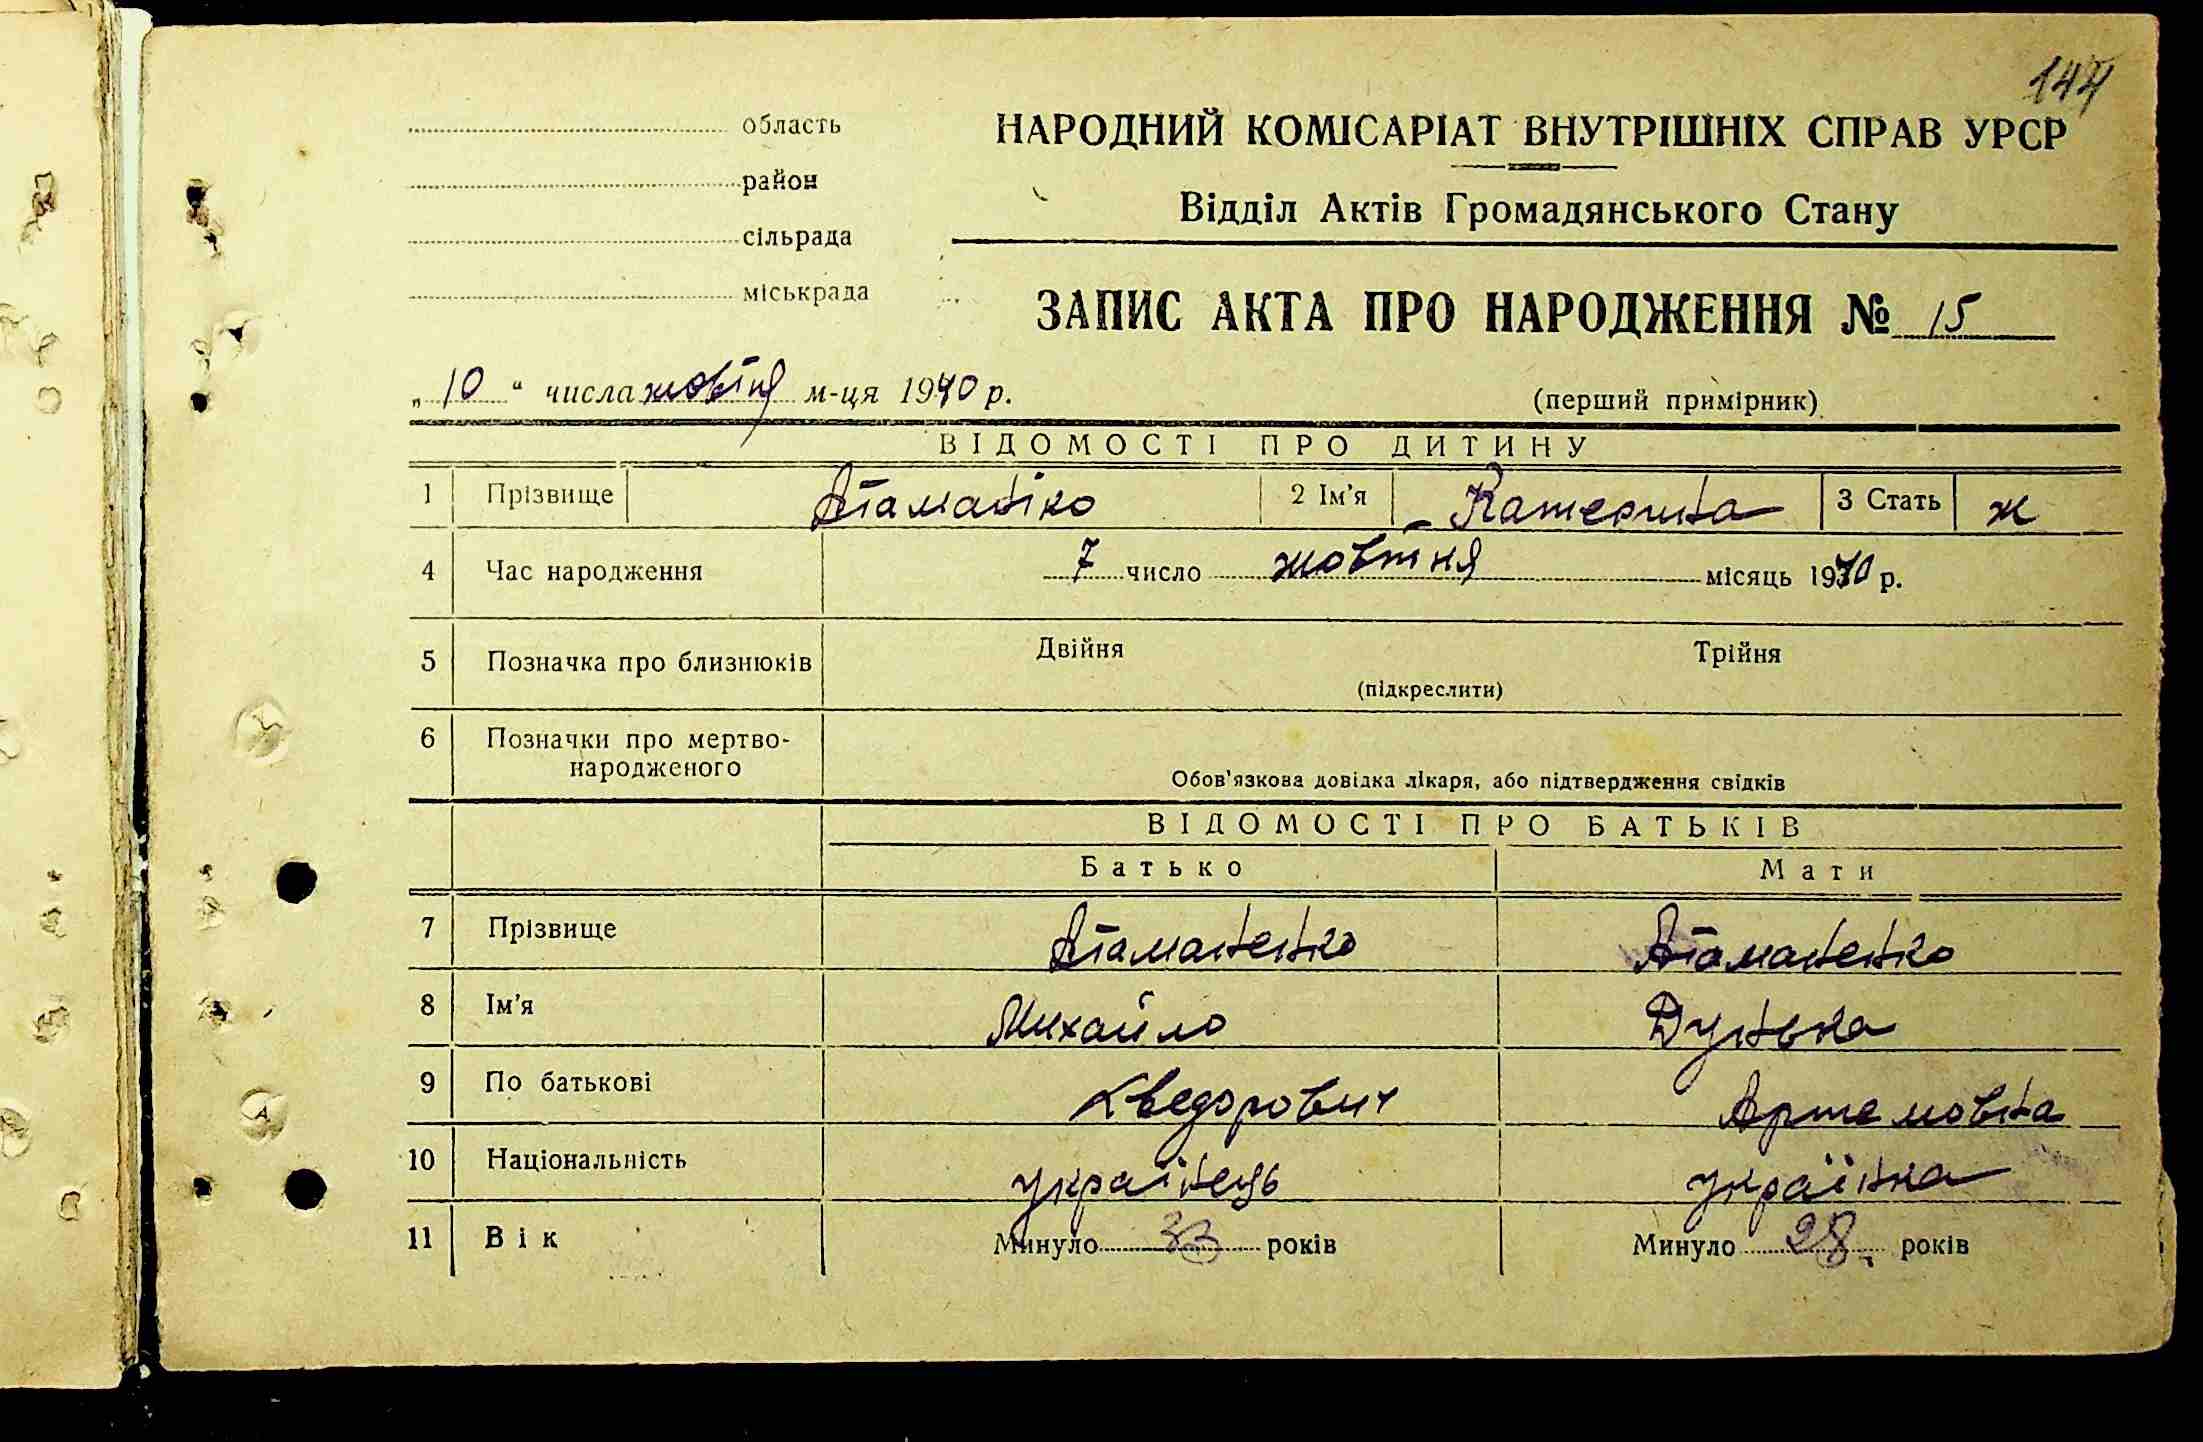 144
область
район
сільрада
міськрада
НАРОДНИЙ КОМІСАРІАТ ВНУТРІШНІХ СПРАВ УРСР
Відділ Актів Громадянського Стану
ЗАПИС АКТА ПРО НАРОДЖЕННЯ № 15
„10“ числа м-ця 1940 р.
(перший примірник)
ВІДОМОСТІ ПРО ДИТИНУ
1 Прізвище 2 Ім'я Катерина 3 Стать ж
4 Час народження 7 число жовтня місяць 1940 р.
5 Позначка про близнюків Двійня Трійня
(підкреслити)
6 Позначки про мертво-
народженого
Обов'язкова довідка лікаря, або підтвердження свідків
ВІДОМОСТІ ПРО БАТЬКІВ
Батько Мати
7 Прізвище Атаманенко Атаманенко
8 Ім'я Михайло Дунька
9 По батькові Хведорович Артемовна
10 Національність українець українка
11 Вік Минуло 33 років Минуло 28 років